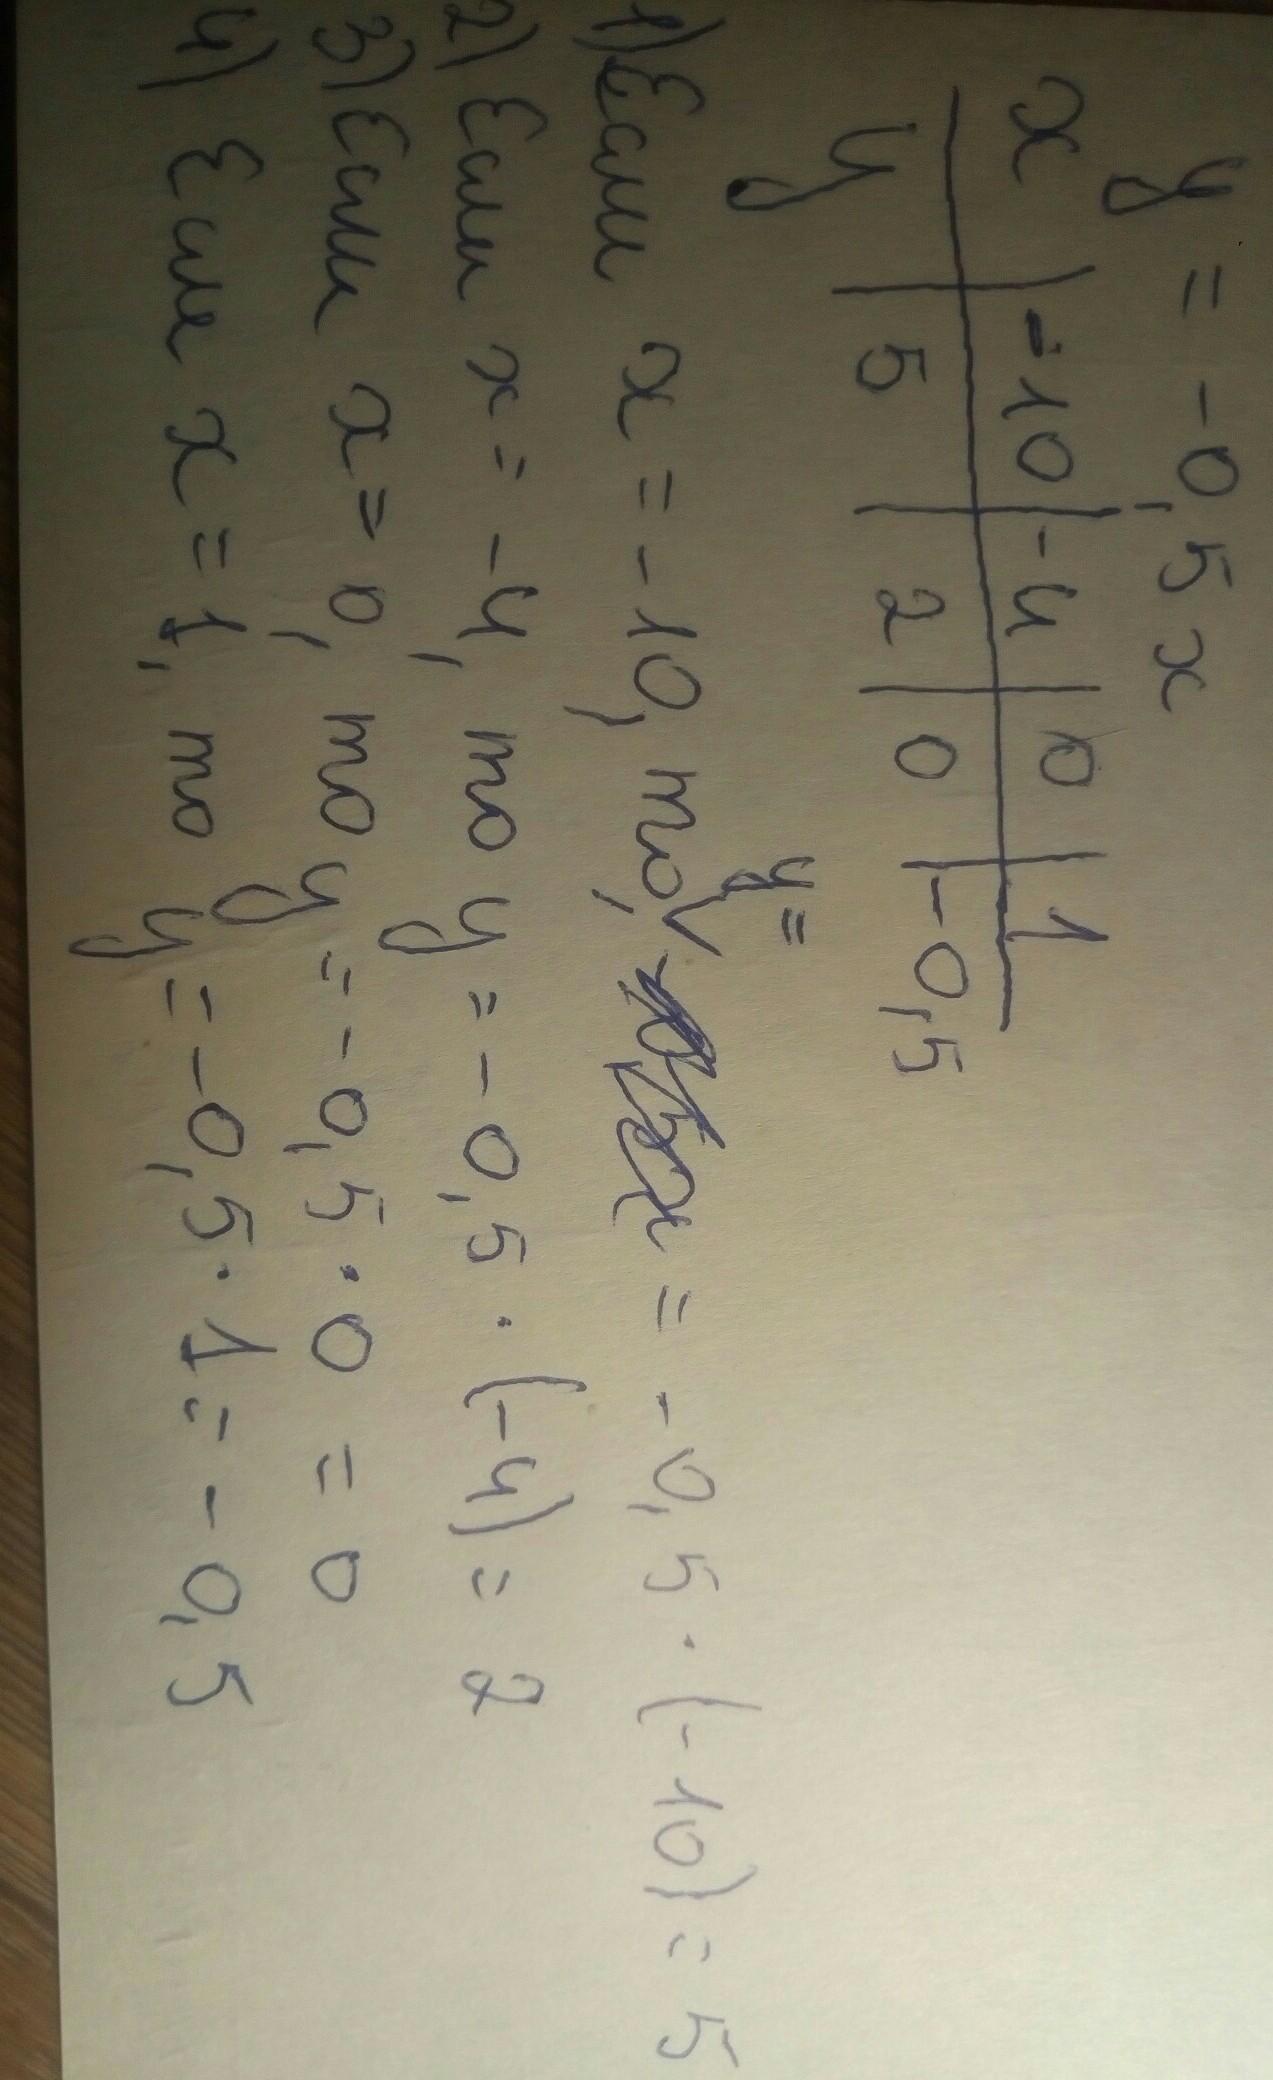 y = -0,5x
x | -10 | -4 | 0 | 1
y | 5 | 2 | 0 | -0,5
y =
1) Если x = -10, то, = -0,5 · (-10) = 5
2) Если x = -4, то y = -0,5 · (-4) = 2
3) Если x = 0, то y = -0,5 · 0 = 0
4) Если x = 1, то y = -0,5 · 1 = -0,5